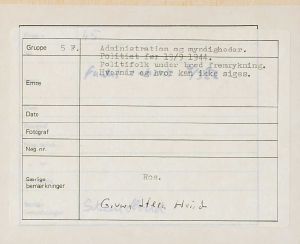 Gruppe 5 F. Administration og myndigheder.
Politiet før 19/9 1944.
Politifolk under hård fremrykning.
Emne Hvornår og hvor kan ikke siges.
Dato
Fotograf
Neg.nr.
Særlige Ros.
bemærkninger